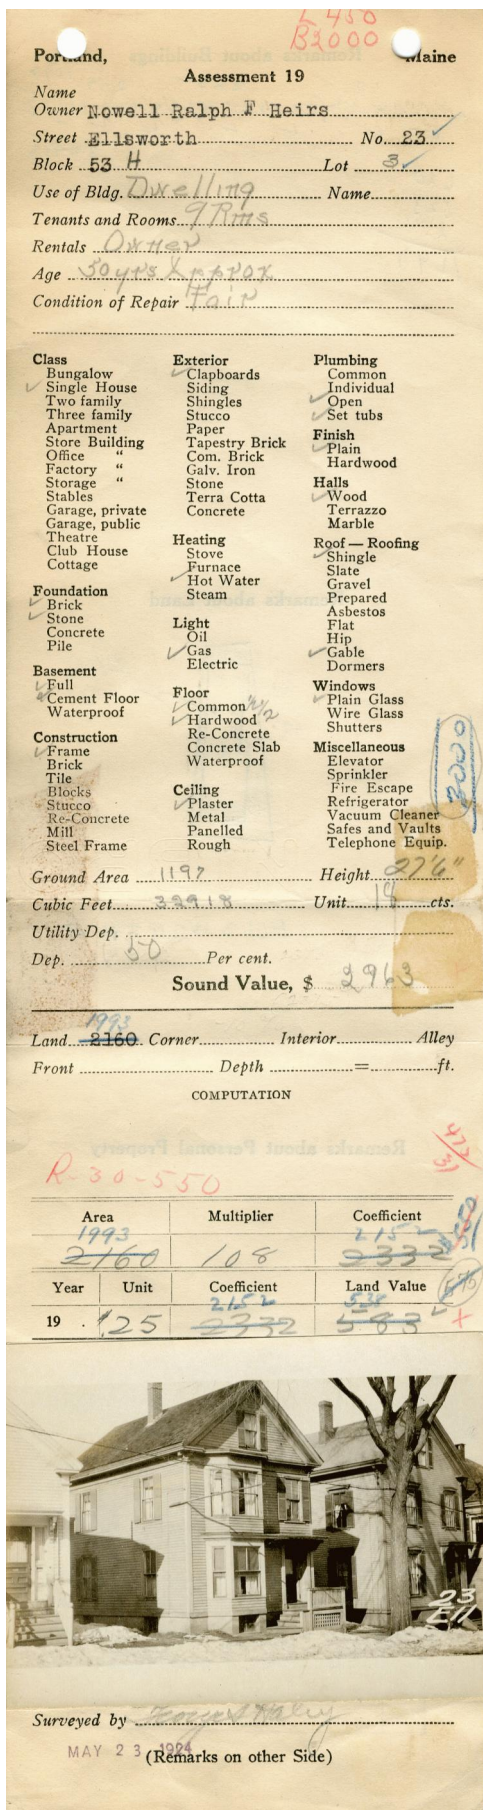 L 450
B2000
Portland, Maine
Assessment 19
Name
Owner Nowell Ralph F Heirs
Street Ellsworth No. 23
Block 53 H Lot 3
Use of Bldg. Dwelling Name
Tenants and Rooms 9 Rms
Rentals Owner
Age 50 yrs Approx
Condition of Repair Fair
Class
Bungalow
Single House
Two family
Three family
Apartment
Store Building
Office "
Factory "
Storage "
Stables
Garage, private
Garage, public
Theatre
Club House
Cottage
Foundation
Brick
Stone
Concrete
Pile
Basement
Full
Cement Floor
Waterproof
Construction
Frame
Brick
Tile
Blocks
Stucco
Re-Concrete
Mill
Steel Frame
Exterior
Clapboards
Siding
Shingles
Stucco
Paper
Tapestry Brick
Com. Brick
Galv. Iron
Stone
Terra Cotta
Concrete
Heating
Stove
Furnace
Hot Water
Steam
Light
Oil
Gas
Electric
Floor
Common
Hardwood 1/2
Re-Concrete
Concrete Slab
Waterproof
Ceiling
Plaster
Metal
Panelled
Rough
Plumbing
Common
Individual
Open
Set tubs
Finish
Plain
Hardwood
Halls
Wood
Terrazzo
Marble
Roof — Roofing
Shingle
Slate
Gravel
Prepared
Asbestos
Flat
Hip
Gable
Dormers
Windows
Plain Glass
Wire Glass
Shutters
Miscellaneous
Elevator
Sprinkler
Fire Escape
Refrigerator
Vacuum Cleaner
Safes and Vaults
Telephone Equip.
3000
Ground Area 1197 Height 27'6"
Cubic Feet 32918 Unit 18 cts.
Utility Dep.
Dep. 50 Per cent.
Sound Value, $ 2963
1993
Land 2160 Corner Interior Alley
Front Depth = ft.
COMPUTATION
477/31
R-30-550
Area Multiplier Coefficient
1993 2152
2160 108 2332
Year Unit Coefficient Land Value
2152 538
19 .25 2332 583
575
23
Ell
Surveyed by
MAY 23 1924
(Remarks on other Side)